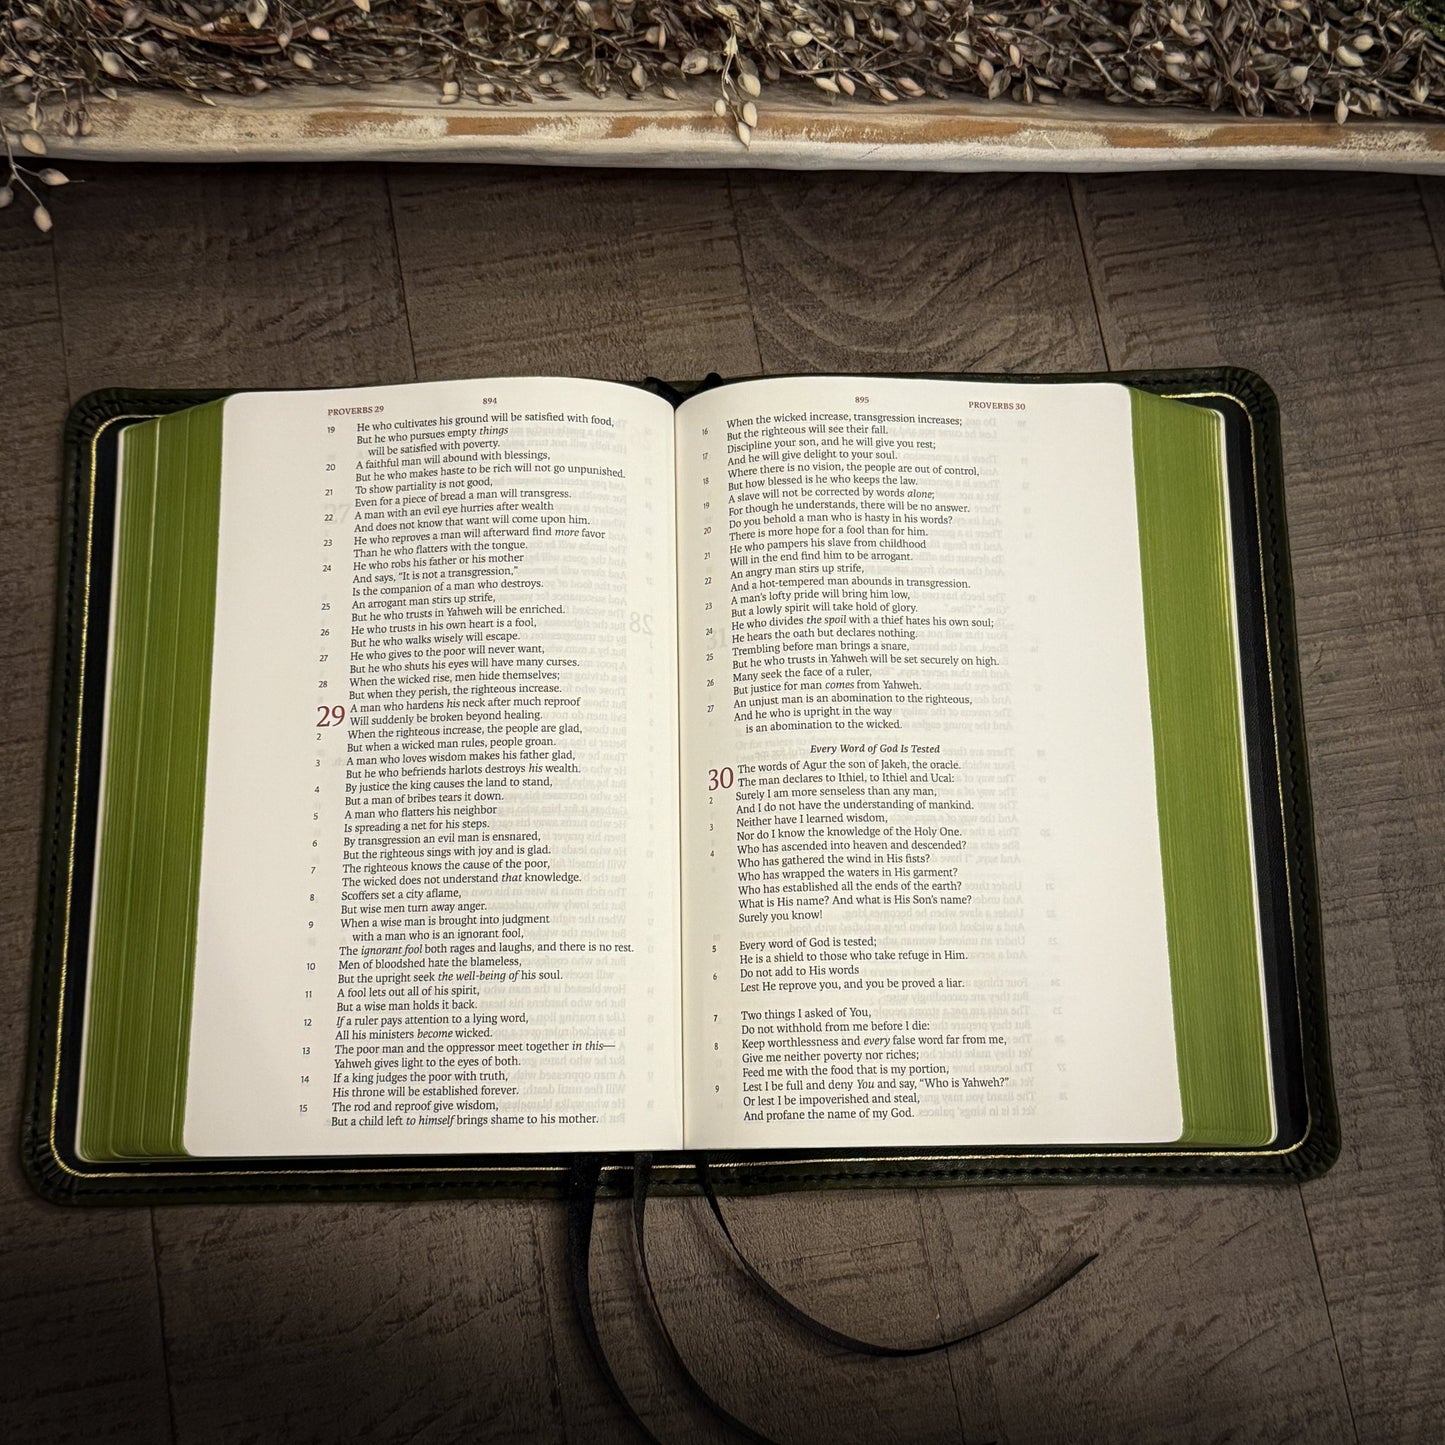 PROVERBS 29 894
19 He who cultivates his ground will be satisfied with food,
But he who pursues empty things
will be satisfied with poverty.
20 A faithful man will abound with blessings,
But he who makes haste to be rich will not go unpunished.
21 To show partiality is not good,
Even for a piece of bread a man will transgress.
22 A man with an evil eye hurries after wealth
And does not know that want will come upon him.
23 He who reproves a man will afterward find more favor
Than he who flatters with the tongue.
24 He who robs his father or his mother
And says, “It is not a transgression,”
Is the companion of a man who destroys.
25 An arrogant man stirs up strife,
But he who trusts in Yahweh will be enriched.
26 He who trusts in his own heart is a fool,
But he who walks wisely will escape.
27 He who gives to the poor will never want,
But he who shuts his eyes will have many curses.
28 When the wicked rise, men hide themselves;
But when they perish, the righteous increase.
29 A man who hardens his neck after much reproof
Will suddenly be broken beyond healing.
2 When the righteous increase, the people are glad,
But when a wicked man rules, people groan.
3 A man who loves wisdom makes his father glad,
But he who befriends harlots destroys his wealth.
4 By justice the king causes the land to stand,
But a man of bribes tears it down.
5 A man who flatters his neighbor
Is spreading a net for his steps.
6 By transgression an evil man is ensnared,
But the righteous sings with joy and is glad.
7 The righteous knows the cause of the poor,
The wicked does not understand that knowledge.
8 Scoffers set a city aflame,
But wise men turn away anger.
9 When a wise man is brought into judgment
with a man who is an ignorant fool,
The ignorant fool both rages and laughs, and there is no rest.
10 Men of bloodshed hate the blameless,
But the upright seek the well-being of his soul.
11 A fool lets out all of his spirit,
But a wise man holds it back.
12 If a ruler pays attention to a lying word,
All his ministers become wicked.
13 The poor man and the oppressor meet together in this—
Yahweh gives light to the eyes of both.
14 If a king judges the poor with truth,
His throne will be established forever.
15 The rod and reproof give wisdom,
But a child left to himself brings shame to his mother.
895 PROVERBS 30
16 When the wicked increase, transgression increases;
But the righteous will see their fall.
17 Discipline your son, and he will give you rest;
And he will give delight to your soul.
18 Where there is no vision, the people are out of control,
But how blessed is he who keeps the law.
19 A slave will not be corrected by words alone;
For though he understands, there will be no answer.
20 Do you behold a man who is hasty in his words?
There is more hope for a fool than for him.
21 He who pampers his slave from childhood
Will in the end find him to be arrogant.
22 An angry man stirs up strife,
And a hot-tempered man abounds in transgression.
23 A man's lofty pride will bring him low,
But a lowly spirit will take hold of glory.
24 He who divides the spoil with a thief hates his own soul;
He hears the oath but declares nothing.
25 Trembling before man brings a snare,
But he who trusts in Yahweh will be set securely on high.
26 Many seek the face of a ruler,
But justice for man comes from Yahweh.
27 An unjust man is an abomination to the righteous,
And he who is upright in the way
is an abomination to the wicked.
Every Word of God Is Tested
30 The words of Agur the son of Jakeh, the oracle.
The man declares to Ithiel, to Ithiel and Ucal:
2 Surely I am more senseless than any man,
And I do not have the understanding of mankind.
3 Neither have I learned wisdom,
Nor do I know the knowledge of the Holy One.
4 Who has ascended into heaven and descended?
Who has gathered the wind in His fists?
Who has wrapped the waters in His garment?
Who has established all the ends of the earth?
What is His name? And what is His Son's name?
Surely you know!
5 Every word of God is tested;
He is a shield to those who take refuge in Him.
6 Do not add to His words
Lest He reprove you, and you be proved a liar.
7 Two things I asked of You,
Do not withhold from me before I die:
8 Keep worthlessness and every false word far from me,
Give me neither poverty nor riches;
Feed me with the food that is my portion,
9 Lest I be full and deny You and say, “Who is Yahweh?”
Or lest I be impoverished and steal,
And profane the name of my God.